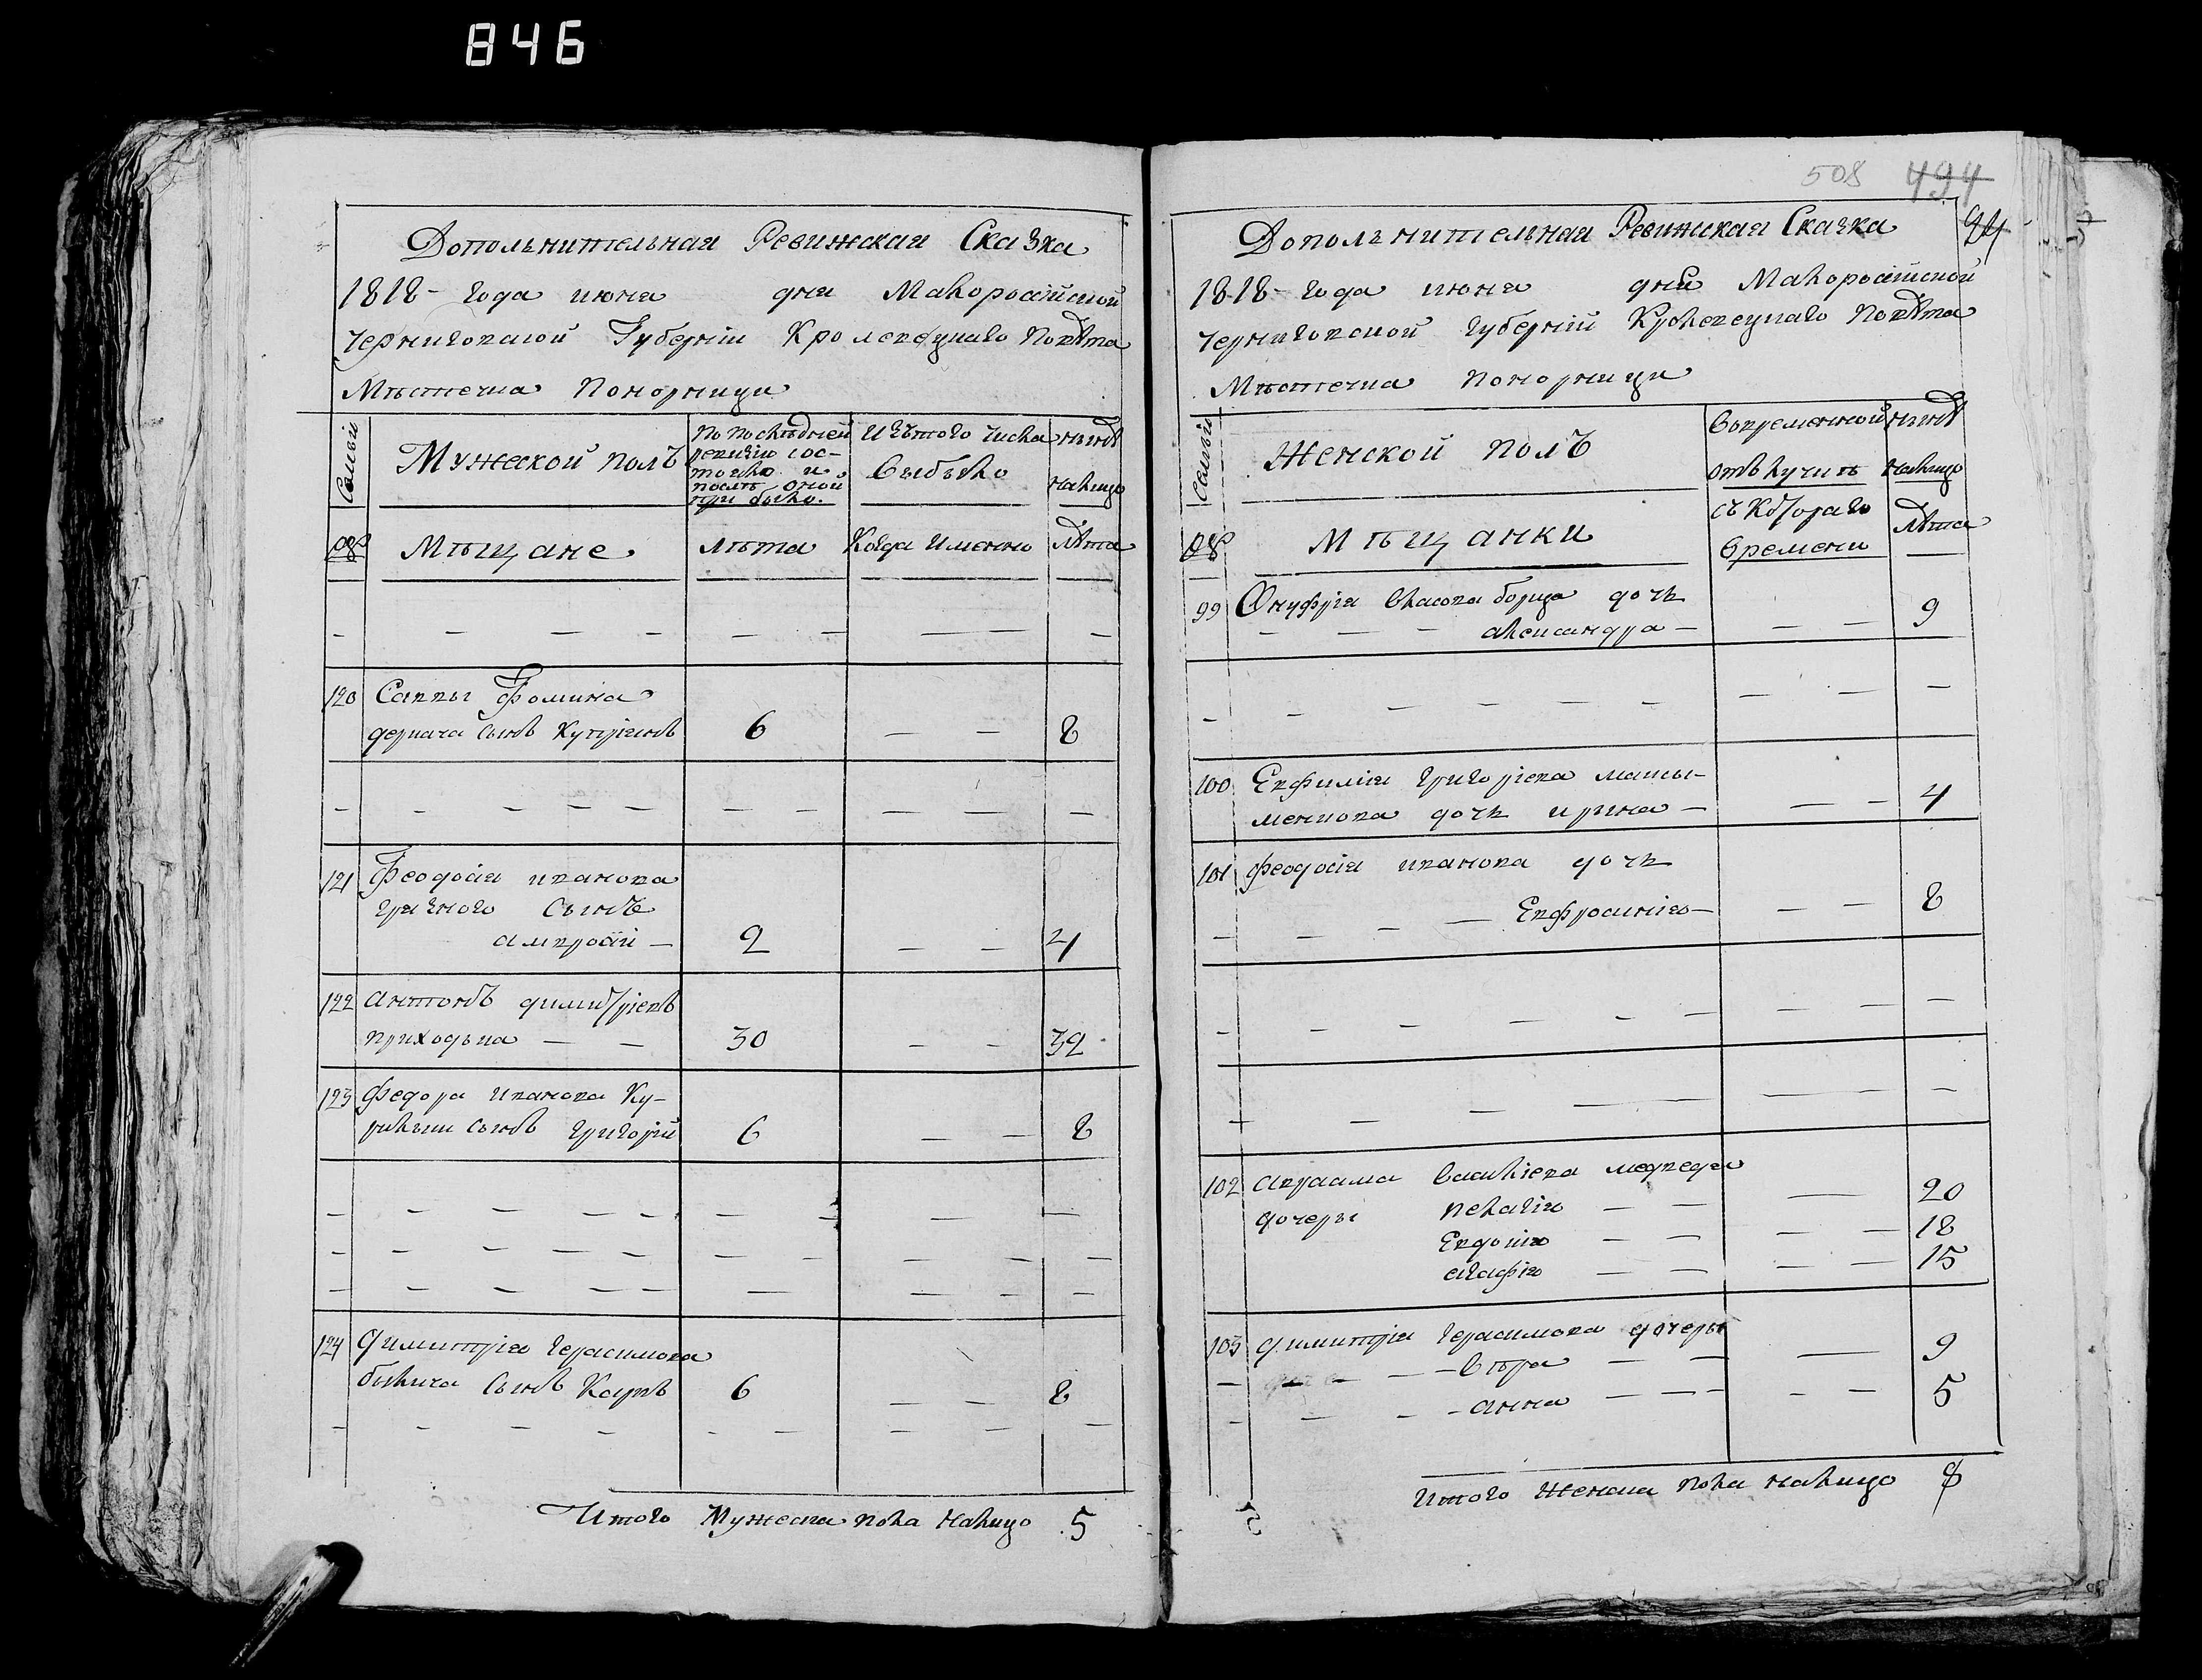 846
Дополънителъная Ревижская Сказка
1818- года июня дня Малоросійской
Черниговской Губерніи Кролевецкаго Повѣта
Мѣстечка Понорници
Семьи
Мужеской полъ
По последней ревизіи состояло и послѣ оной прибыло.
Изътого числа выбыло
Нынѣ налицо
№
Мѣщане
лѣта
Когда именно
лѣта
120 Саввы Фомина
деркача сынъ Купріянъ 6 8
121 Феодосія иванова
грязного сынъ
амвросій 2 4
122 антонъ димитріевъ
приходька 30 32
123 Федора иванова Ку-
рилки сынъ григорій 6 8
124 димитрія герасимова
былича сынъ Карпъ 6 8
Итого Мужеска пола налицо 5
508 494
Дополънителъная Ревижская Сказка
1818- года июня дня Малоросійской
Черниговской губерніи Кролевецкаго Повѣта
Мѣстечка Понорници
Семьи
Женской полъ
Вовременной отълучкѣ
нынѣ налицо
№
Мѣщанки
съ Котораго времени
лѣта
99 Онуфрія власова борща дочь
александра 9
100 Евфимія григоріева
дочь ирина 4
101 феодосія иванова дочь
Евфросинія 8
102 авраама василіева медведя
дочеры пелагія 20
Евдокія 18
агафія 15
103 димитрія герасимова дочеры
вѣра 9
анна 5
Итого женска пола налицо 8